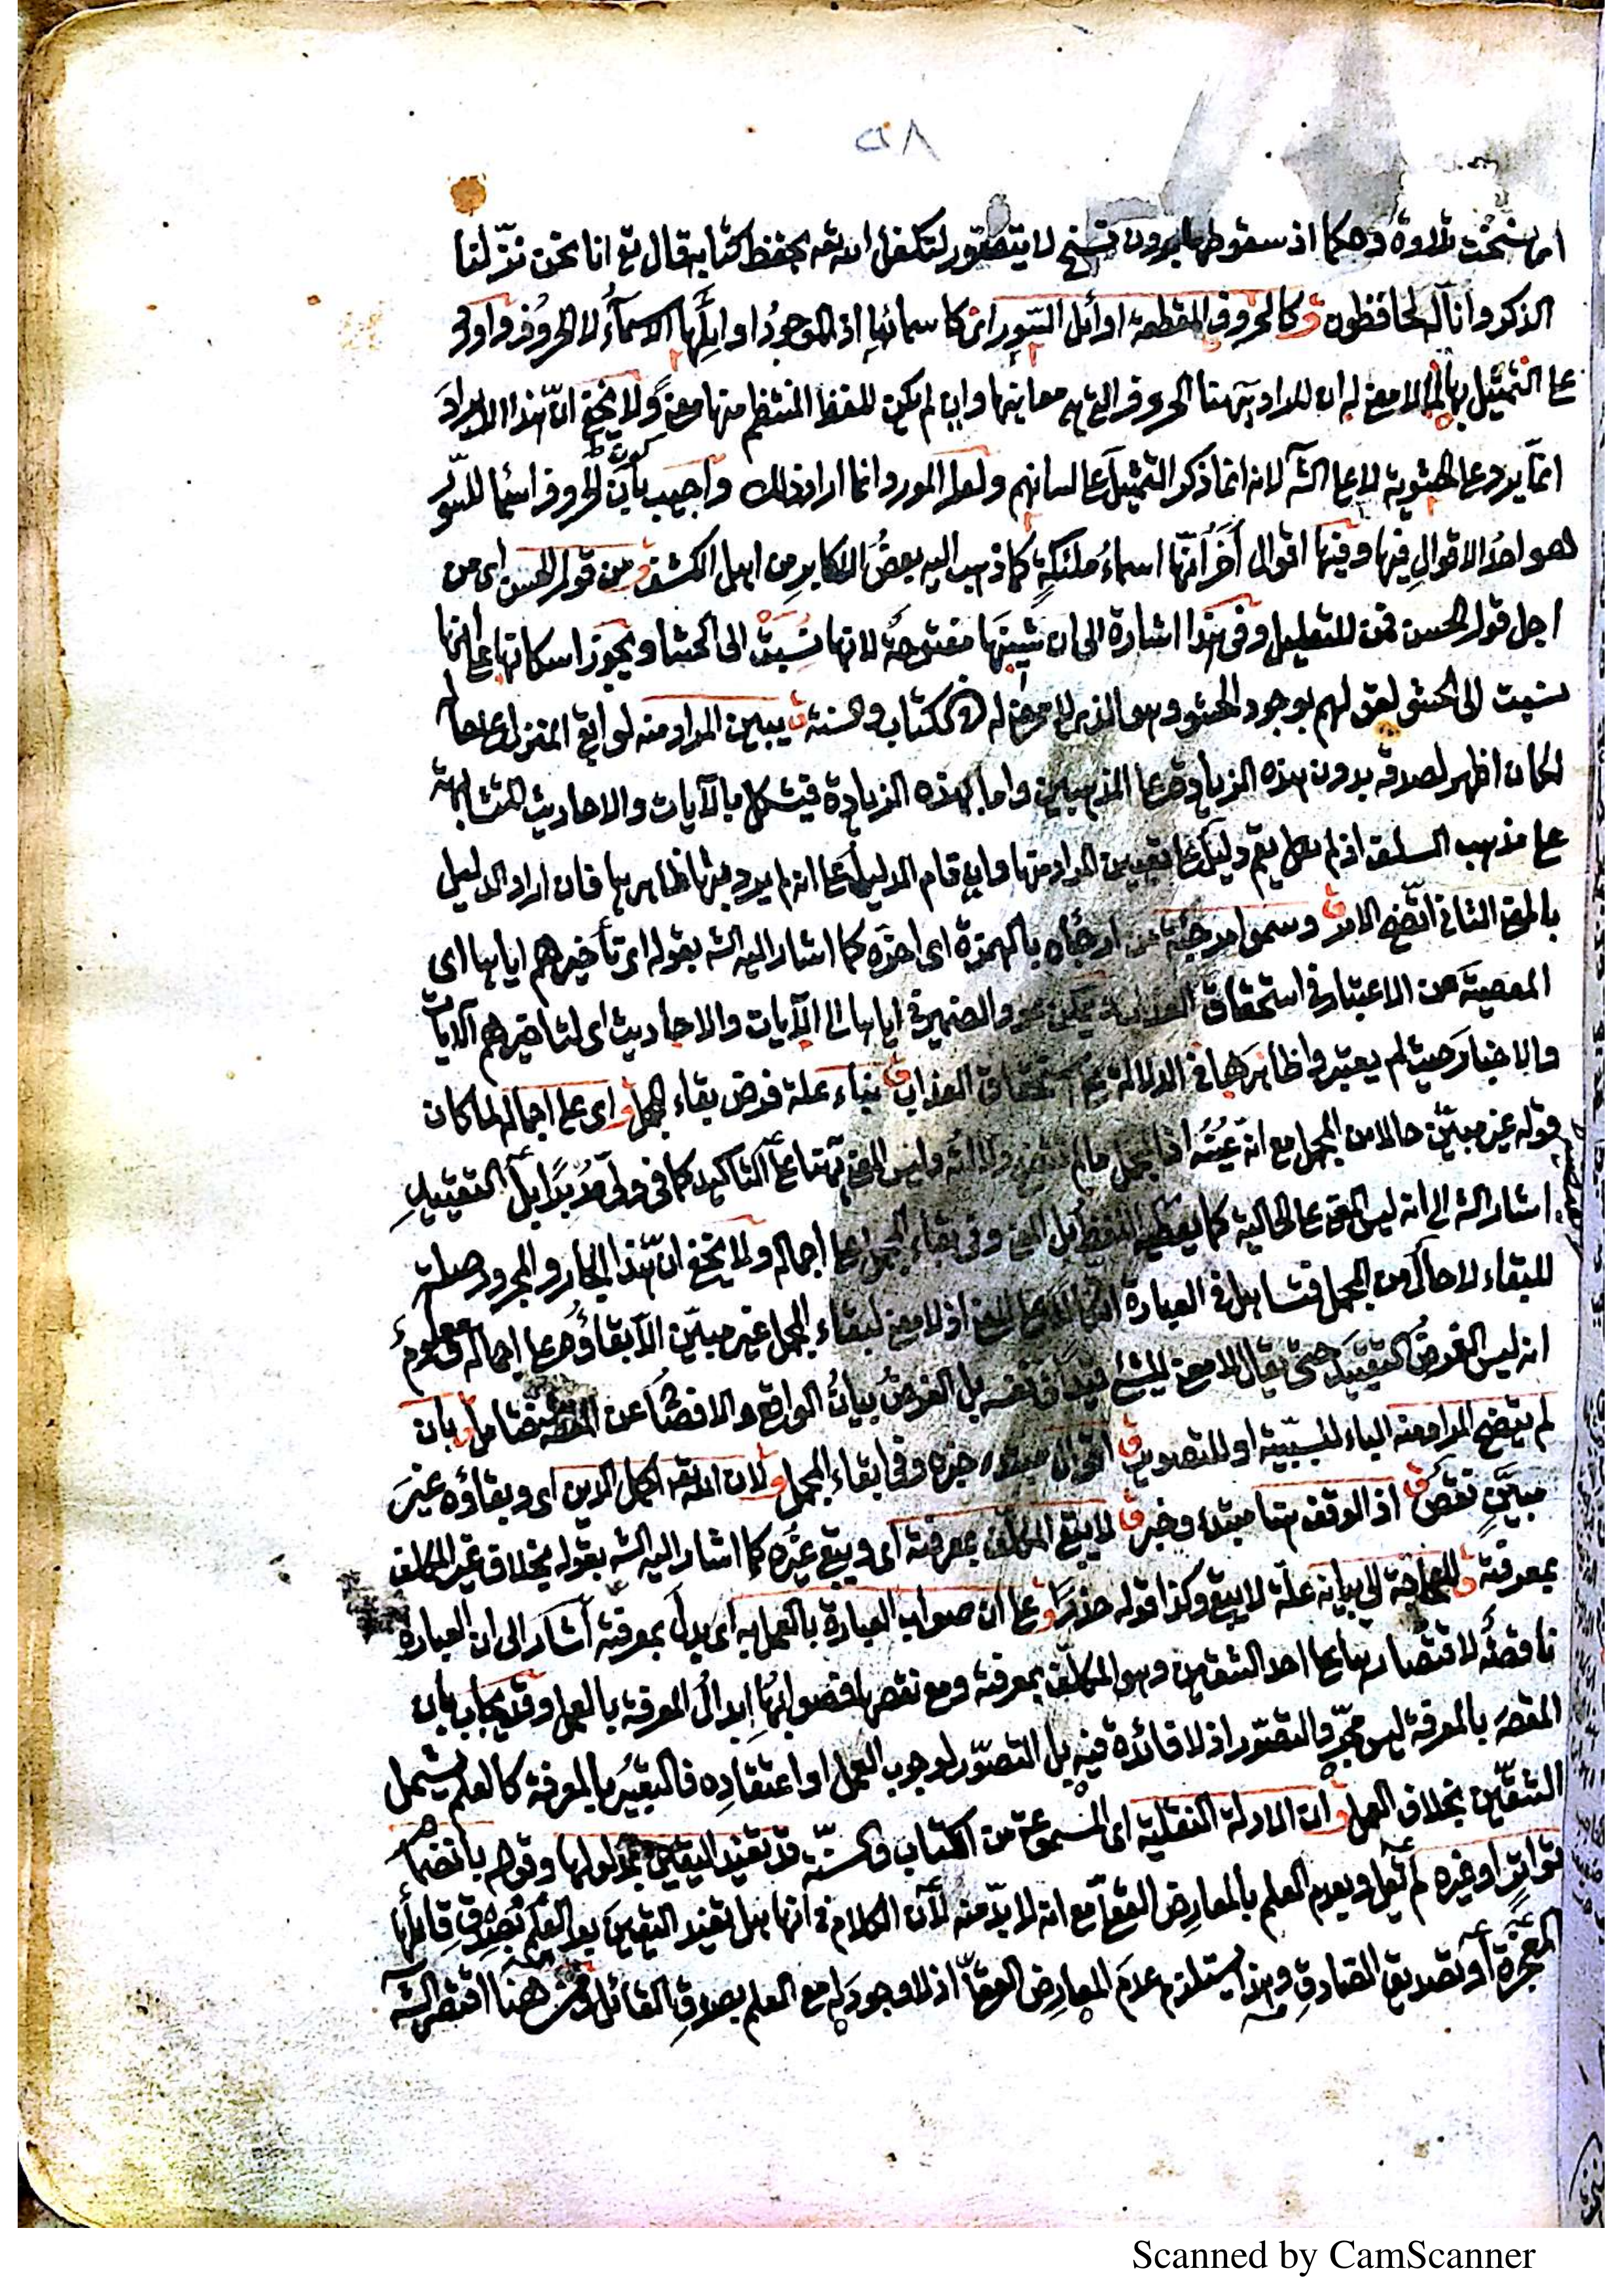 ٥٨
انها نسخت تلاوة وحكما اذ سقوطها بدون نسخ لا يتصور لتكفل الله تعه بحفظ كتابه قال تع انا نحن نزلنا
الذكر وانا له لحافظون و كالحروف المقطعة اوائل السور اى كاسمائها اذ الموجود اوايلها الاسماء لا الحروف واورد
عا التمثيل بها لما لا معنى له ان المراد بها هنا الحروف التى هى معاينها وان لم يكن للفظ المنتظم منها معنى ولا يخفى ان هذا الايراد
انما يرد عا الحشوية لا عا الشه لانه انما ذكر التمثيل عا لسانهم ولعل المورد انما اراد ذلك واجيب بان كون الحروف اسما للسور
هو احد الاقوال فيها وفيها اقوال اخر انها اسماء ملئكة كما ذهب اليه بعض الاكابر من اهل الكشف و من قول الحسن اى من
اجل قول الحسن فمن للتعليل وفى هذا اشارة الى ان شينها مفتوحة لانها نسبة الى الحشا ويجوز اسكانها عا انها
نسبت الى الحشو لقولهم بوجود الحشو وهو الذى لا معنى له فى الكتاب والسنة ق يبين المراد منه لو ابقى المتن عا حاله
لكان اظهر لصدقه بدون هذه الزيادة عا المذهبين واما بهذه الزيادة فيشكل بالآيات والاحاديث المتشابهة
عا مذهب السلف اذ لم يقم دليل عا تعيين المراد منها وان قام الدليل عا انه لم يرد بها ظاهرها فان اراد الدليل
بالمعنى الثانى اتضح الامر ق وسموا مرجئة من ارجأه بالهمزة اى اخره كما اشار اليه الشه بقوله اى تأخيرهم اياها اى
المعصية عن الاعتبار فى استحقاق العذاب يمكن عود الضمير فى اياها الى الآيات والاحاديث اى لتاخيرهم الآيات
والاخبار حيث لم يعتبروا ظاهرها فى الدلالة عا استحقاق العذاب ق بناء علة فرض بقاء المجمل و اى عا اجماله لما كان
قوله غير مبين حالا من المجمل مع انه عينه اذ المجمل ما لم تتضح دلالته وليس المعنى هنا عا التاكيد كما فى ولى مدبرا بل التقييد
اشار الشه الى انه ليس المعنى عا الحالية كما يعطيه اللفظ بل المعنى وفى بقاء المجمل عا اجماله ولا يخفى ان هذا الجار والمجرور صلة
للبقاء لا حال من المجمل فتساهل فى العبارة اذ لا معنى لبقاء المجمل غير مبين الا بقاؤه عا اجماله ومعلوم
انه ليس الغرض التقييد حتى يقال لا معنى للشئ بل الغرض بيان الواقع والافصاح عن المقصد فتامل و بان
لم يتضح المراد منه الباء للسببية او للتصوير ق اقوال مبتدء خبره وفى بقاء المجمل و لان الله تعه اكمل الدين اى وبقاؤه غير
مبين نقص ق اذ الوقف هنا مبتدء وخبر ق لا يبقى المكلف بمعرفته اى ويبقى غيره كما اشار اليه الشه بقوله بخلاف غير المكلف
بمعرفته ق للحاجة الى بيانه علة لا يبقى وكذا قوله حذرا و عا ان صواب العبارة بالعمل به اى بدل بمعرفته اشار الى ان العبارة
ناقصة لاقتصارها عا احد الشقين وهو المكلف بمعرفته ومع نقصها فصوابها ابدال المعرفة بالعمل وقد يجاب بان
المقصد بالمعرفة ليس مجرد التصور اذ لا فائدة فيه بل التصور لوجوب العمل او اعتقاده فالتعبير بالمعرفة كالعلم يشمل
الشقين بخلاف العمل و ان الادلة النقلية اى المسموعة من الكتاب والسنة قد تفيد اليقين بمدلولها وقولهم بانضمام
تواتر او غيره لم يقل وبعدم العلم بالمعارض العقلى مع انه لا بد منه لان الكلام فى انها هل تفيد اليقين بعد العلم بصدق قائلها
المعجزة او تصديق الصادق وهذا يستلزم عدم المعارض العقلى اذ لا وجود له مع العلم بصدق القائل ومن هنا اقتصر الشه
Scanned by CamScanner